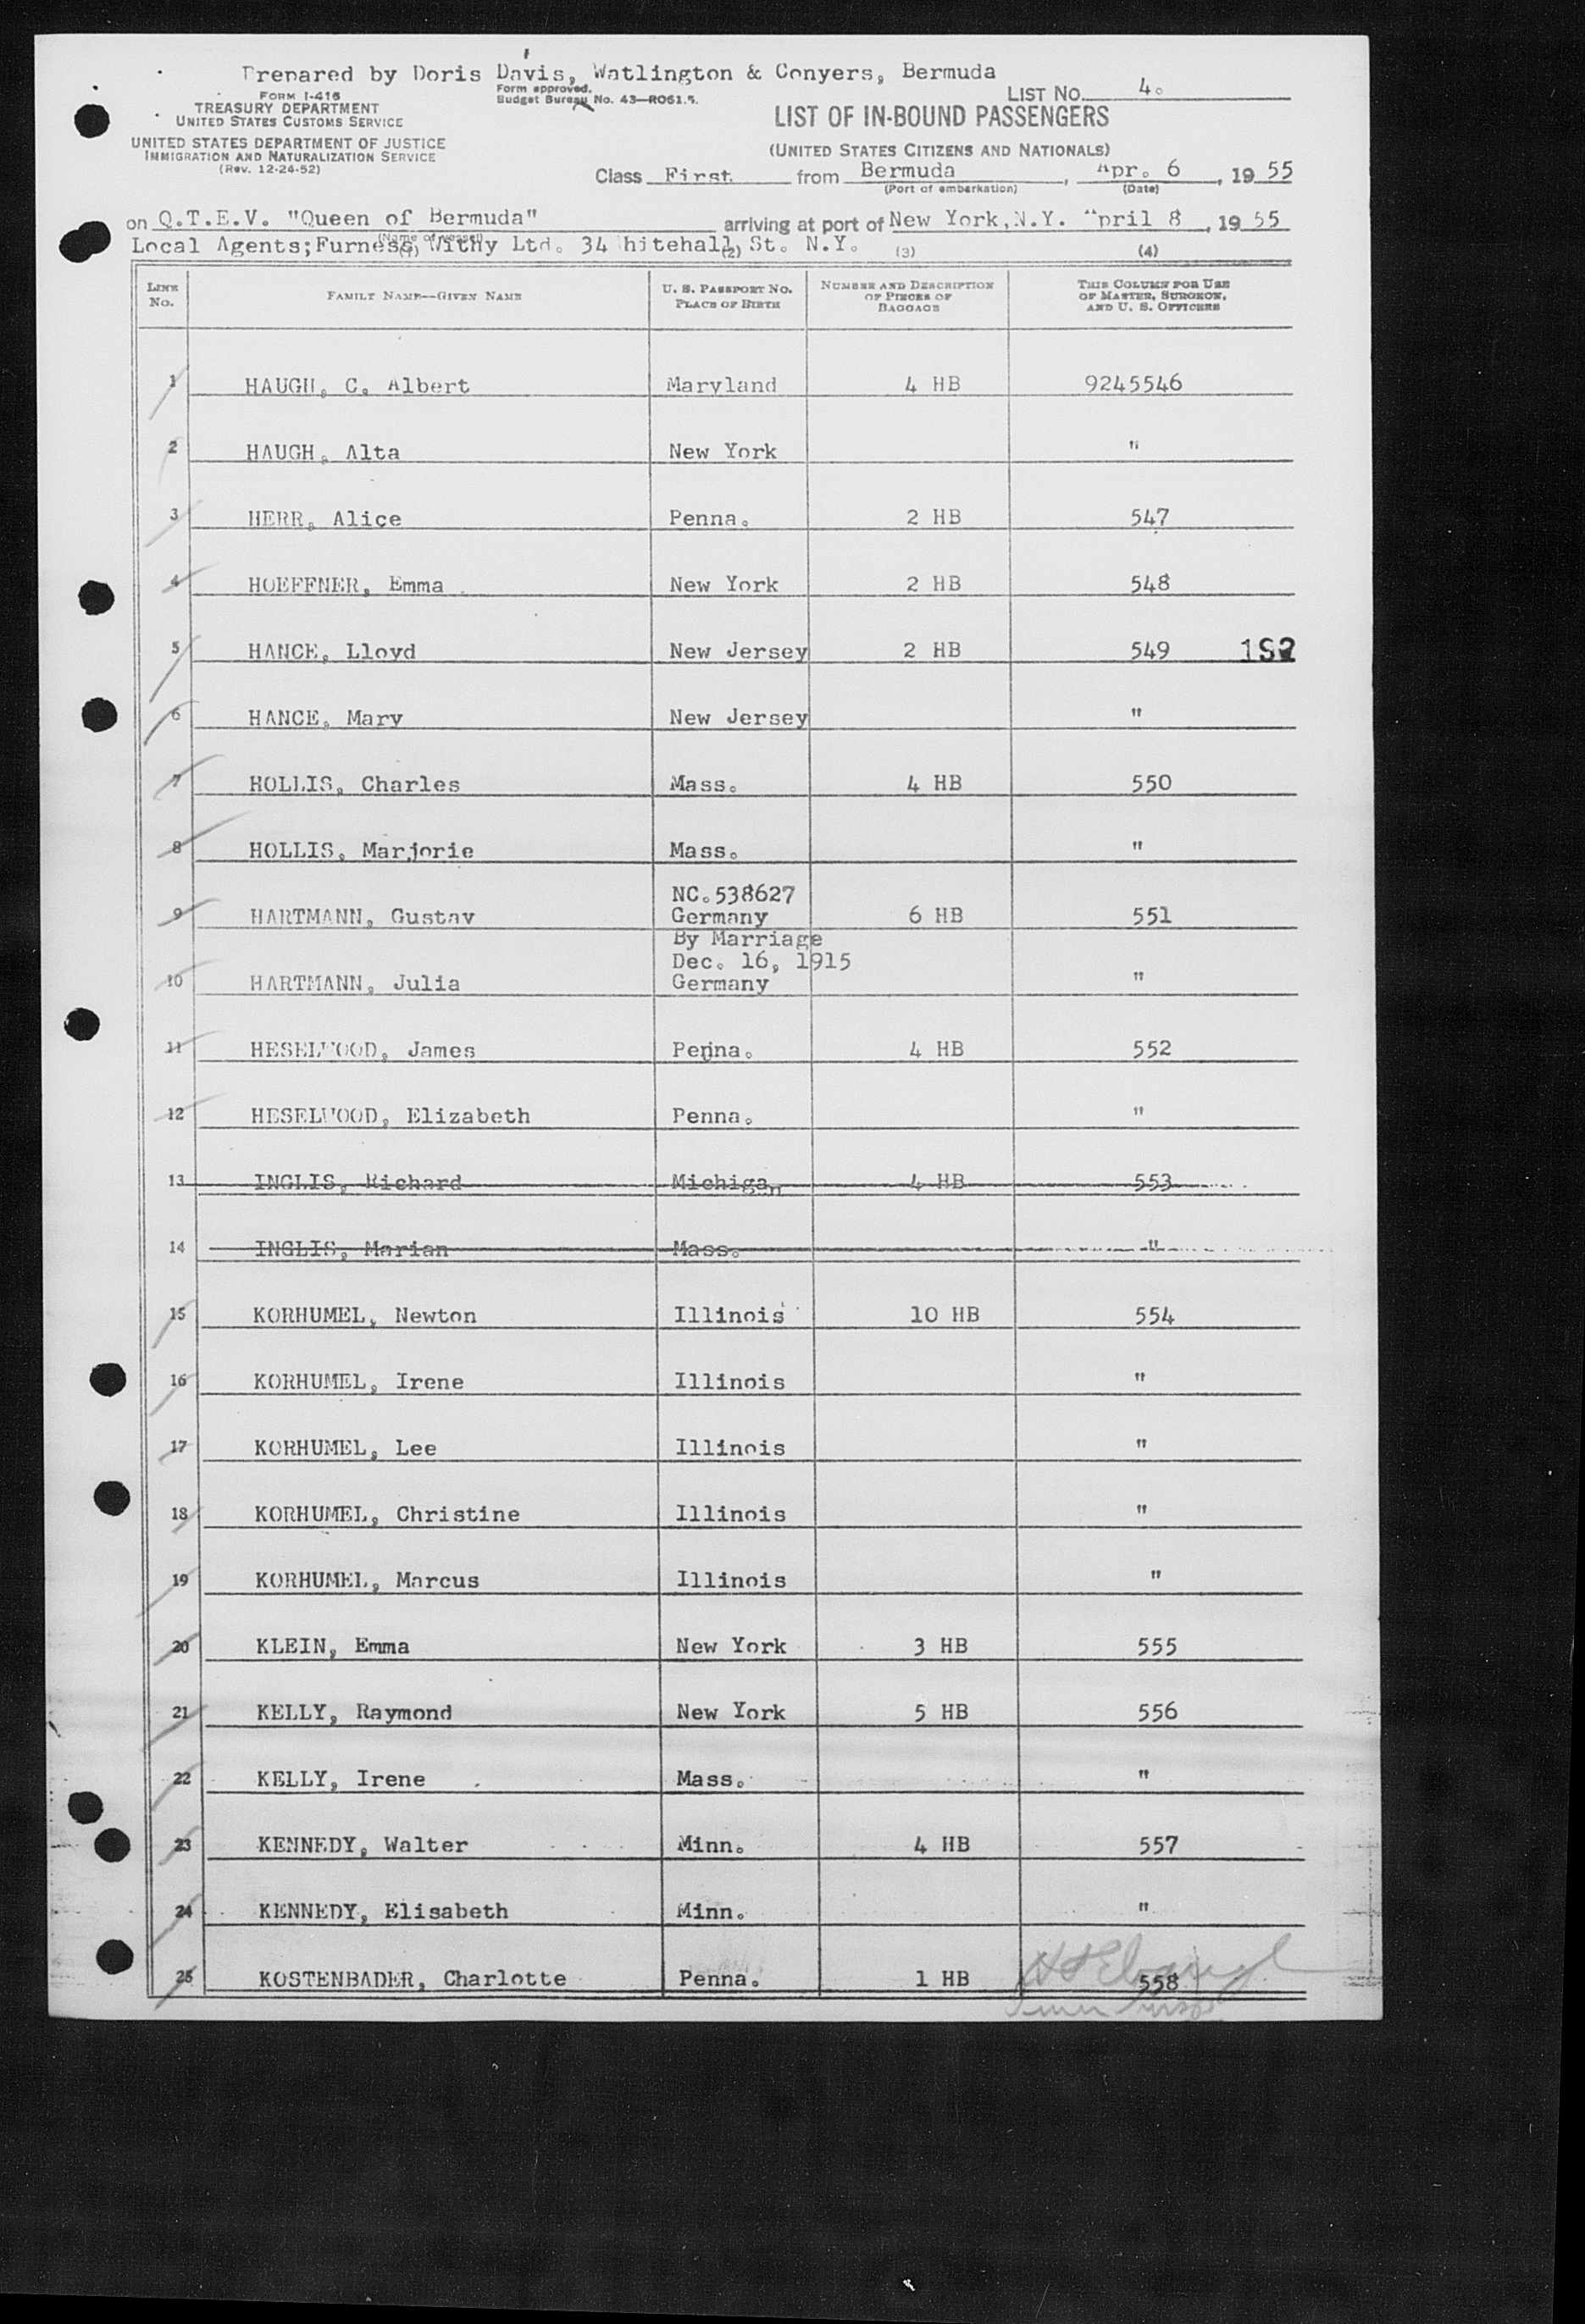 Prepared by Doris Davis, Watlington & Conyers, Bermuda
FORM I-416
TREASURY DEPARTMENT
UNITED STATES CUSTOMS SERVICE
UNITED STATES DEPARTMENT OF JUSTICE
IMMIGRATION AND NATURALIZATION SERVICE
(Rev. 12-24-52)
Form approved.
Budget Bureau No. 43—RO61.5.
LIST NO. 4.
LIST OF IN-BOUND PASSENGERS
(UNITED STATES CITIZENS AND NATIONALS)
Class First from Bermuda, Apr. 6, 19 55
(Port of embarkation) (Date)
on Q.T.E.V. "Queen of Bermuda" arriving at port of New York, N.Y. April 8, 19 55
(Name of vessel)
Local Agents; Furness, Withy Ltd. 34 Whitehall St. N.Y.
(1) (2) (3) (4)
LINE No. FAMILY NAME—GIVEN NAME U. S. PASSPORT NO. PLACE OF BIRTH NUMBER AND DESCRIPTION OF PIECES OF BAGGAGE THIS COLUMN FOR USE OF MASTER, SURGEON, AND U. S. OFFICERS
1 HAUGH, C. Albert Maryland 4 HB 9245546
2 HAUGH, Alta New York "
3 HERR, Alice Penna. 2 HB 547
4 HOEFFNER, Emma New York 2 HB 548
5 HANCE, Lloyd New Jersey 2 HB 549
6 HANCE, Mary New Jersey "
7 HOLLIS, Charles Mass. 4 HB 550
8 HOLLIS, Marjorie Mass. "
NC.538627
9 HARTMANN, Gustav Germany 6 HB 551
By Marriage
Dec. 16, 1915
10 HARTMANN, Julia Germany "
11 HESELWOOD, James Penna. 4 HB 552
12 HESELWOOD, Elizabeth Penna. "
13 INGLIS, Richard Michigan 4 HB 553
14 INGLIS, Marian Mass. "
15 KORHUMEL, Newton Illinois 10 HB 554
16 KORHUMEL, Irene Illinois "
17 KORHUMEL, Lee Illinois "
18 KORHUMEL, Christine Illinois "
19 KORHUMEL, Marcus Illinois "
20 KLEIN, Emma New York 3 HB 555
21 KELLY, Raymond New York 5 HB 556
22 KELLY, Irene Mass. "
23 KENNEDY, Walter Minn. 4 HB 557
24 KENNEDY, Elisabeth Minn. "
25 KOSTENBADER, Charlotte Penna. 1 HB 558